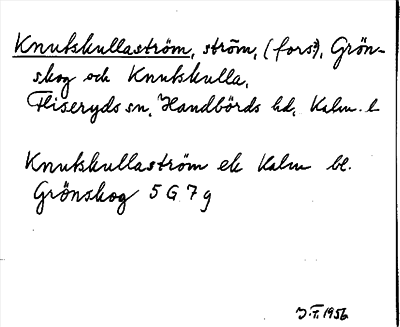 Knutskullaström, ström, (fors?), Grön-
skog och Knutskulla,
Fliseryds sn, Handbörds hd, Kalm. l
Knutskullaström ek Kalm bl.
Grönskog 5 G 7 g
J.F. 1956